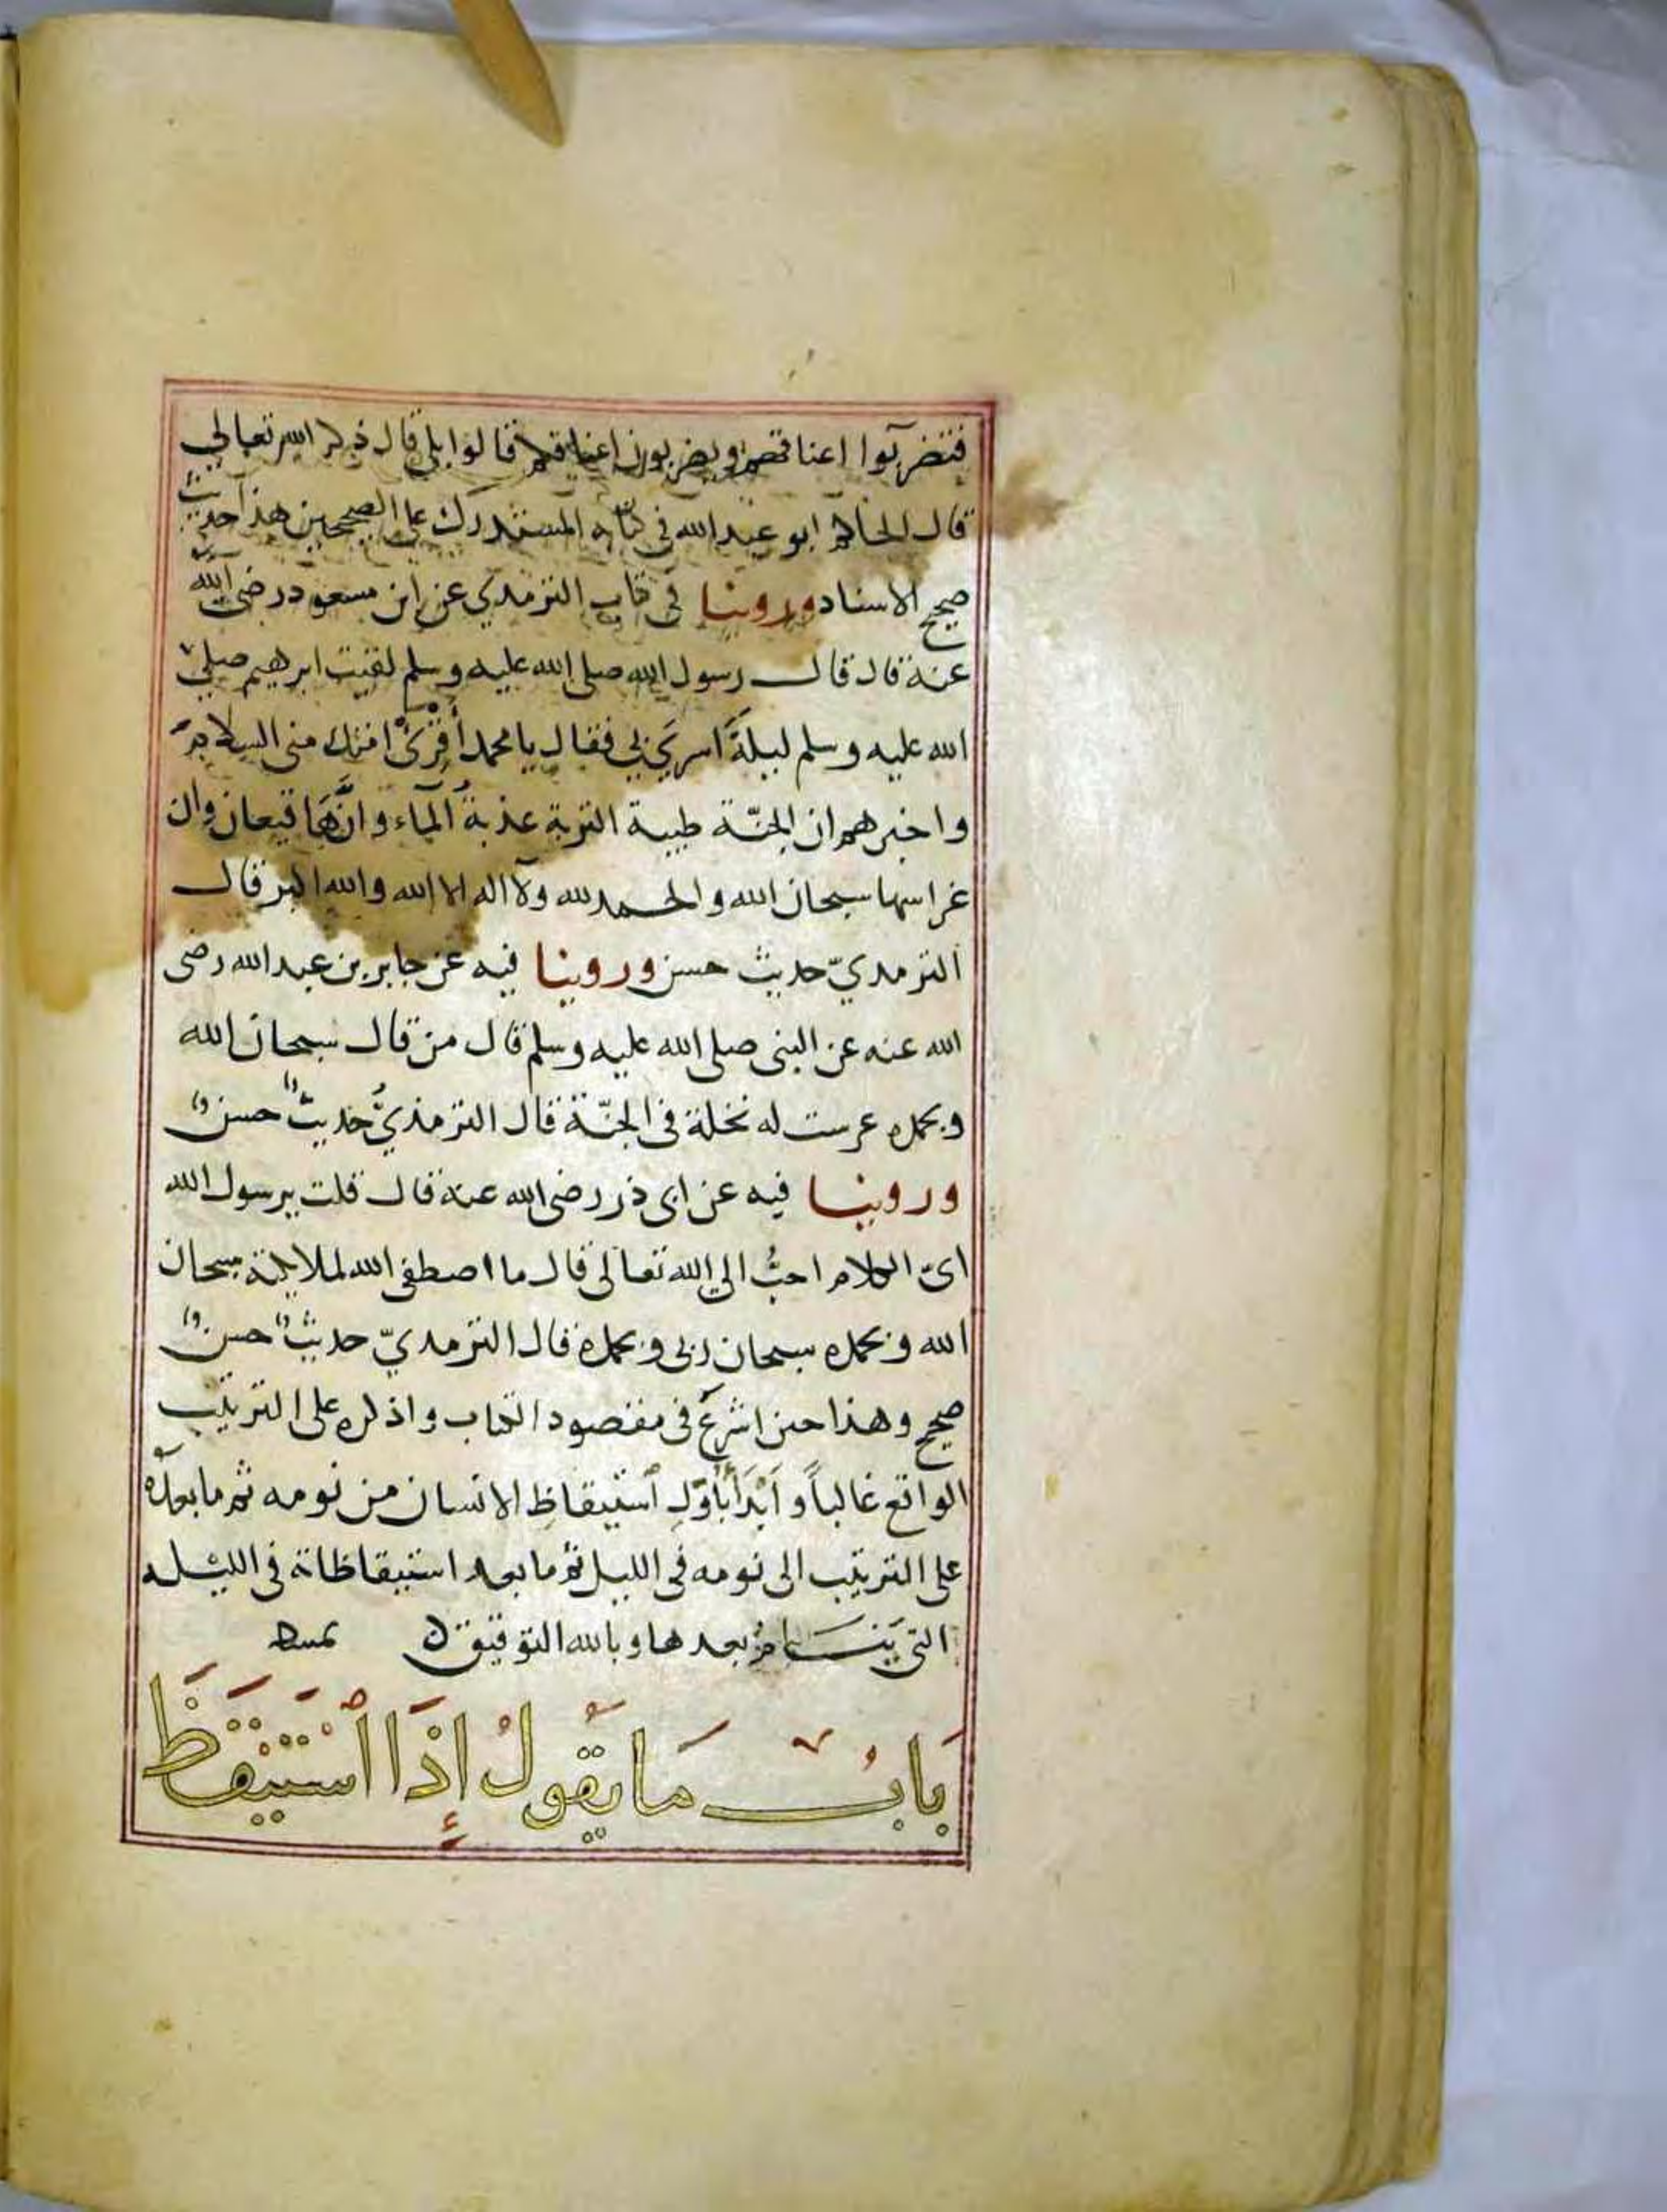 فتضربوا اعناقهم ويضربون اعناقكم قالوا بلى قال ذكر الله تعالى
قال الحاكم ابو عبد الله في كتابه المستدرك على الصحيحين هذا حديث
صحيح الاسناد وروينا في كتاب الترمذي عن ابن مسعود رضي الله
عنه قال قال رسول الله صلى الله عليه وسلم لقيت ابرهيم صلى
الله عليه وسلم ليلة اسري بي فقال يا محمد أقرئ امتك مني السلام
واخبرهم ان الجنّة طيبة التربة عذبة المآء وانَّهَا قيعان وان
غراسها سبحان الله والحمد لله ولا اله الا الله والله اكبر قال
الترمديّ حديث حسن وروينا فيه عن جابر بن عبد الله رضى
الله عنه عن النبى صلى الله عليه وسلم قال من قال سبحان الله
وبحمده عرست له نخلة فى الجنّة قال الترمذيُّ حديث حسن
وروينا فيه عن ابى ذر رضى الله عنه قال قلت يرسول الله
اىّ الكلام احبُّ الى الله تعالى قال ما اصطفى الله لملايكته سبحان
الله وبحمده سبحان ربى وبحمده قال الترمديّ حديث حسن
صحيح وهذا حين اشرع فى مقصود الكتاب واذكره على الترتيب
الواقع غالباً وأبْدَأُ بأوّلِ ٱستيقاظِ الانسان من نومه ثم ما بعده
على الترتيب الى نومه فى الليل ثم ما بعد استيقاظاته فى الليله
التى يَنَـــام بعدها وبالله التوفيق
بَابُ مَا يَقُولُ إِذَا ٱسْتَيْقَظَ